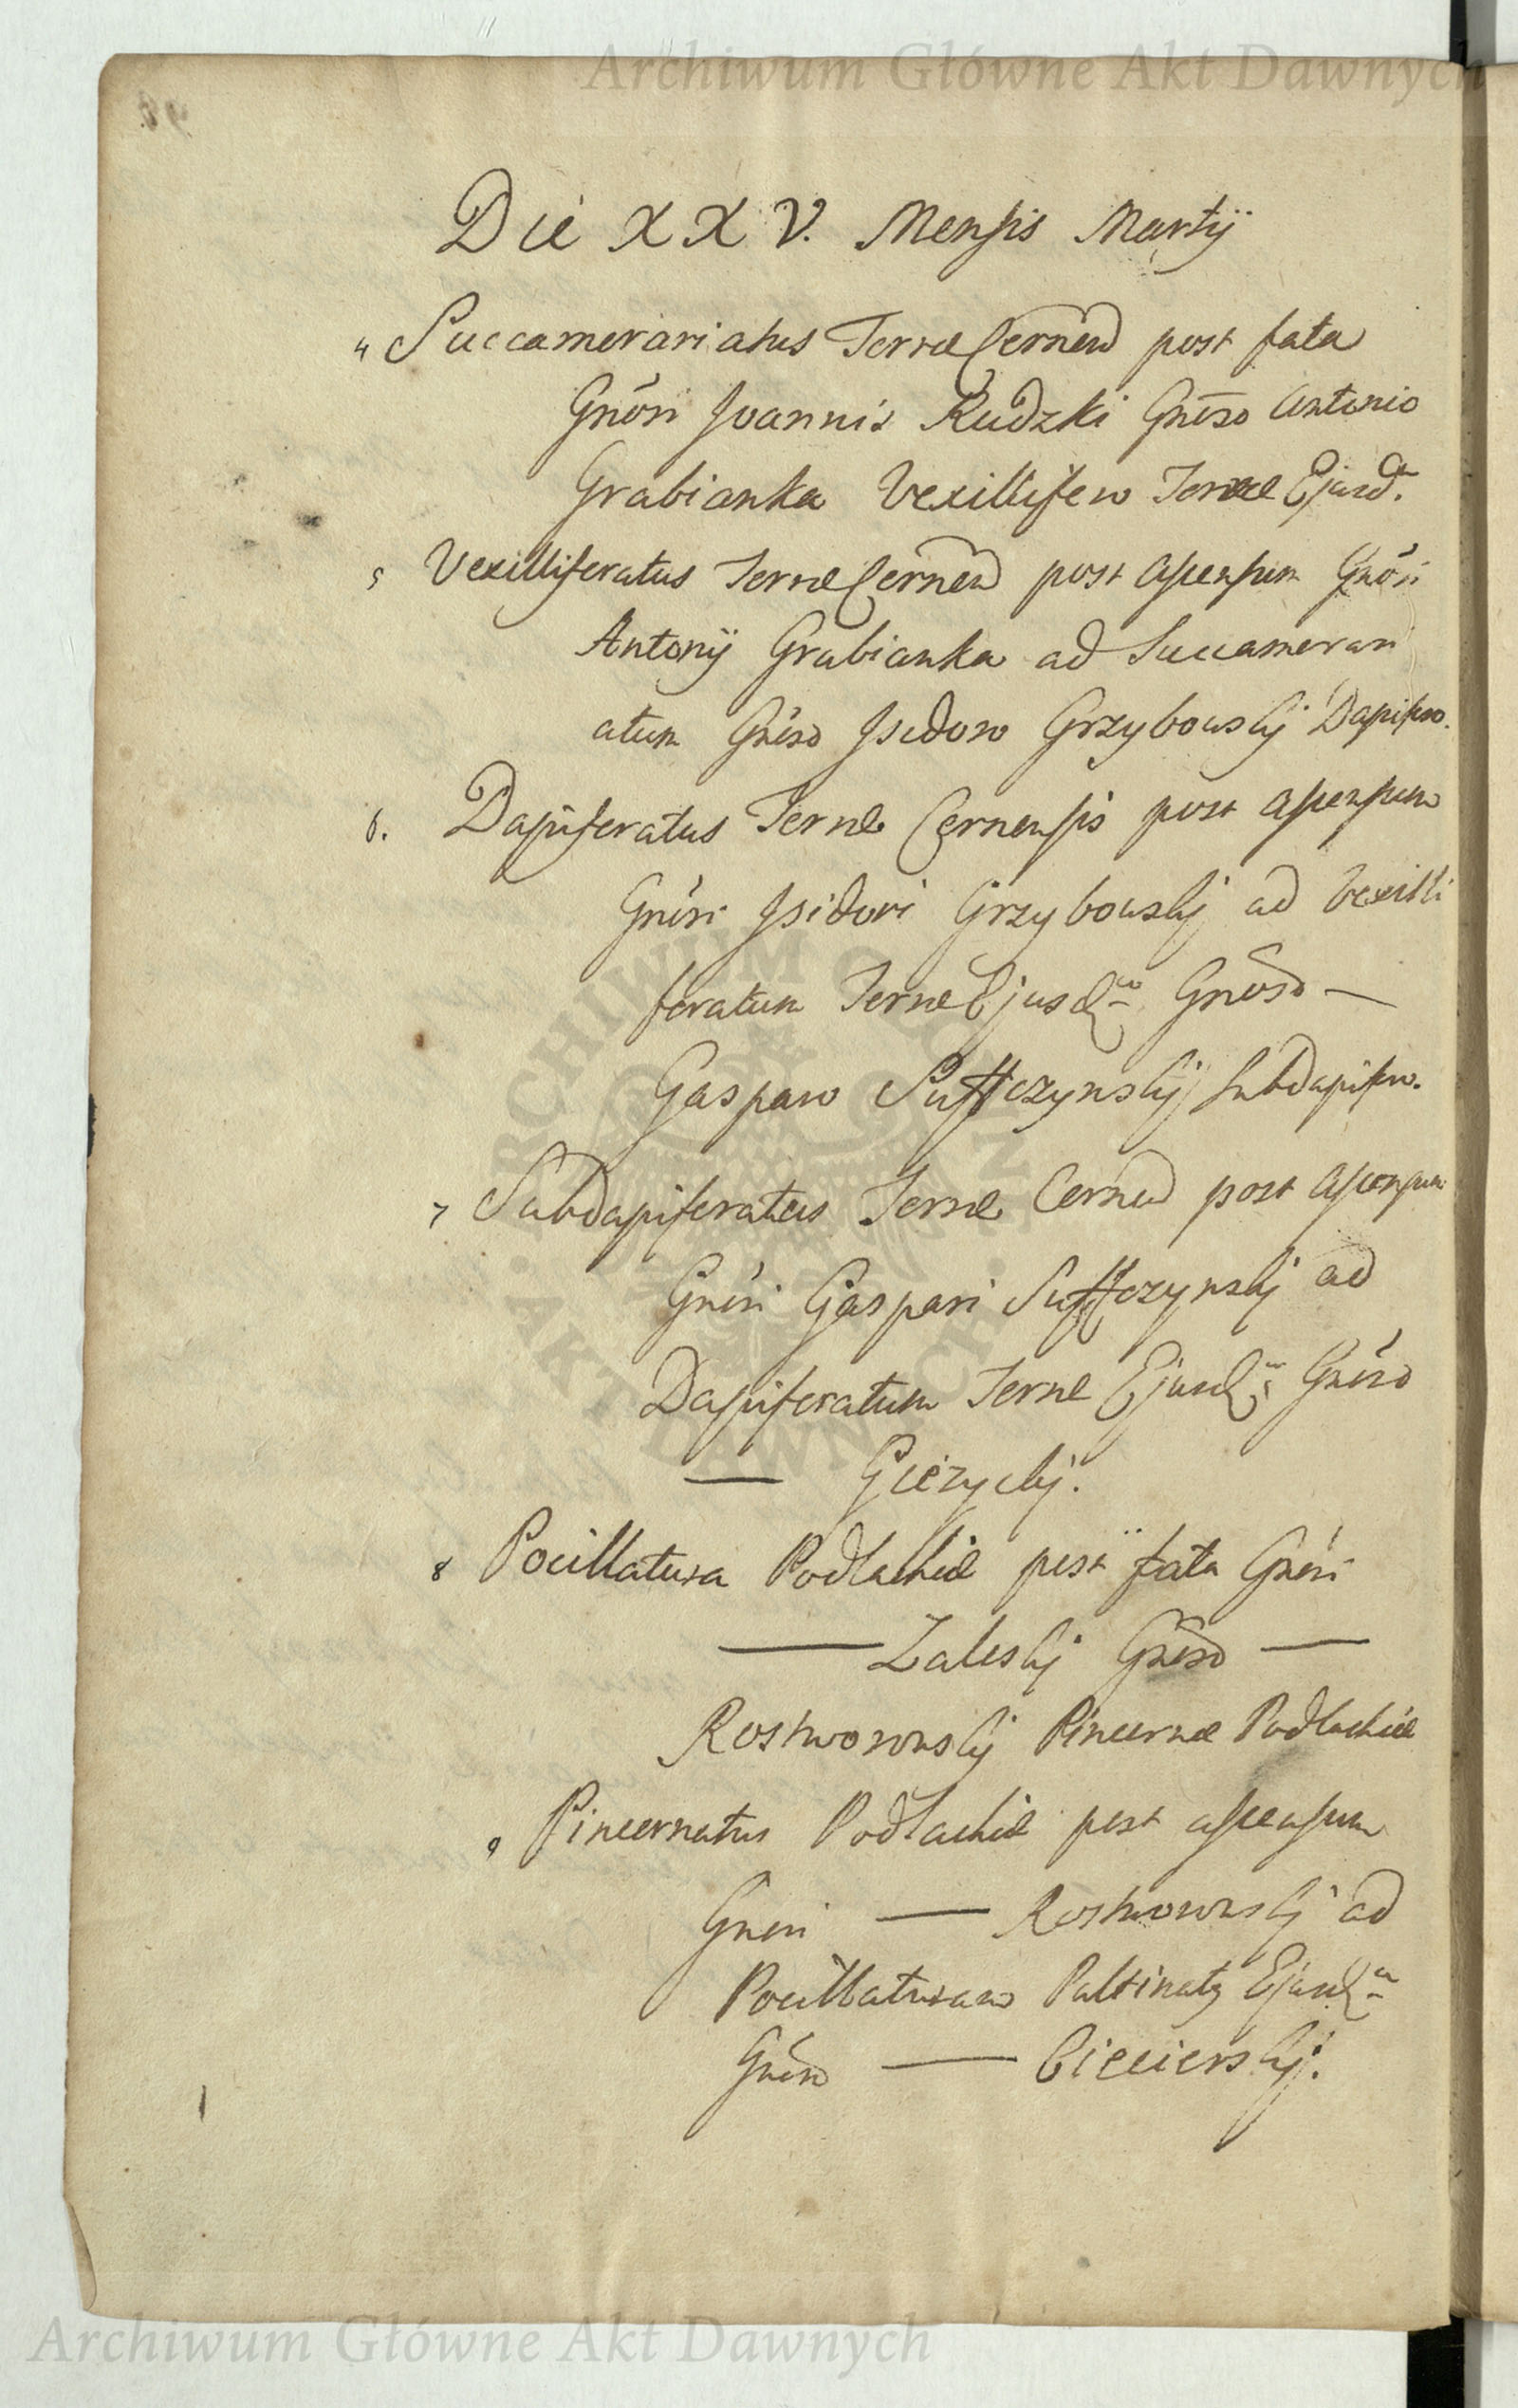 Archiwum Główne Akt Dawnych
Die XXV. Mensis Martij
4 Succamerariatus Terræ Cernen post fata
Gnōsi Joannis Rudzki Gnēso Antonio
Grabianka Vexillifero Terræ Ejusd.
5 Vexilliferatus Terræ Cernen post ascensum Gnōsi
Antonij Grabianka ad Succamerari
atum Gnēso Isidoro Grzybowskj Dapifero.
6. Dapiferatus Terræ Cernensis post ascensum
Gnōsi Isidori Grzybowskj ad Vexilli
feratum Terræ Ejusdm Gnōso —
Gasparo Suffczynskj Subdapifero.
7 Subdapiferatus Terræ Cernen post ascensum
Gnōsi Gaspari Suffczynskj ad
Dapiferatum Terræ Ejusdm Gnēso
— Gieżyckj.
8 Pocillatura Podlachiæ post fata Gnēsi
— Zaleskj Gnēso —
Rostworowskj Pincernæ Podlachiæ
9 Pincernatus Podlachiæ post ascensum
Gnesi — Rostworowskj ad
Pocillaturam Paltinatq Ejusdm
Gnēso — Ciecierskj.
ARCHIWUM GŁÓWNE
AKT DAWNYCH
Archiwum Główne Akt Dawnych